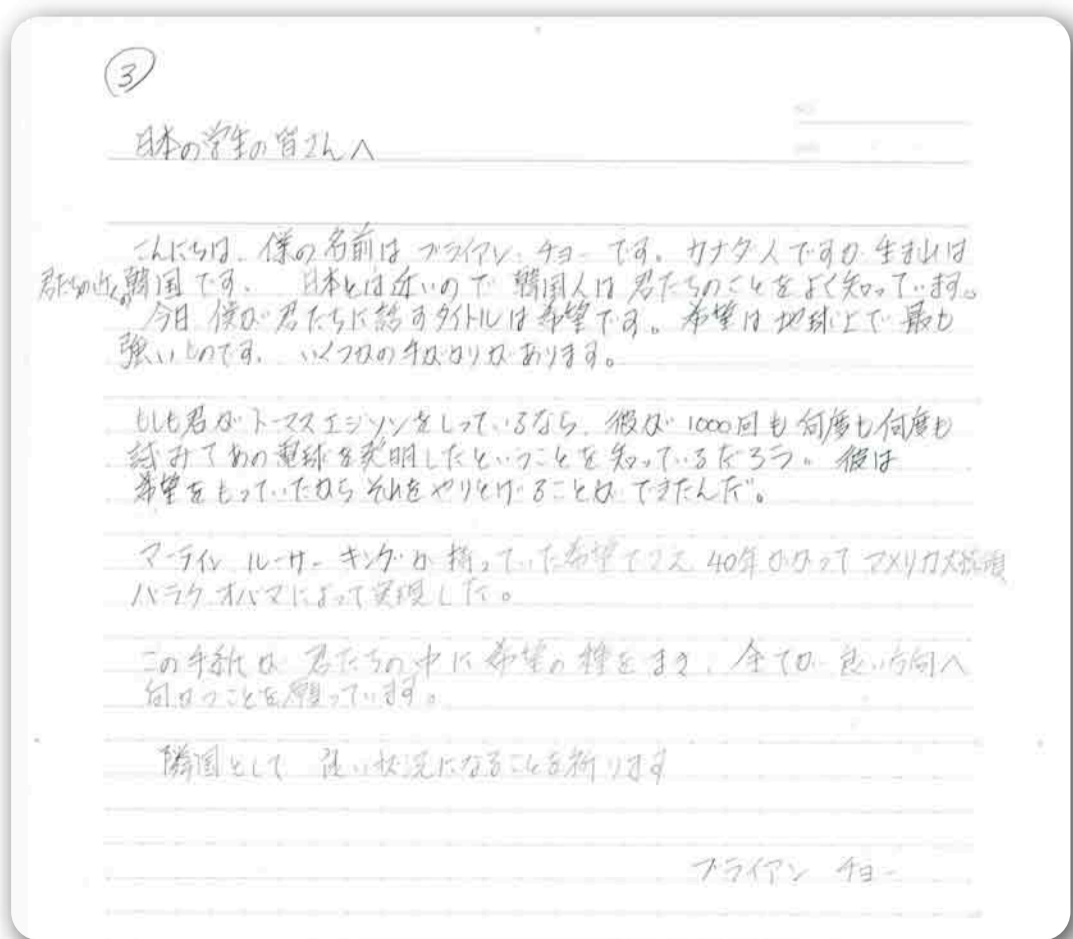 3
日本の学生の皆さんへ
こんにちは、僕の名前は ブライアン チョー です。カナダ人ですが 生まれは
君たちの近くの韓国です。 日本とは近いので 韓国人は 君たちのことをよく知っています。
今日 僕が 君たちに話すタイトルは 希望です。希望は 地球上で 最も
強いものです。 いくつかの手がかりが あります。
もしも君が トーマスエジソンをしっているなら、彼が 1000回も 何度も何度も
試みて あの電球を発明したということを知っているだろう。彼は
希望をもっていたから それをやりとげることが できたんだ。
マーティン ルーサー キングが 持っていた希望 40年かかって アメリカ大統領
バラク オバマによって実現した。
この手紙が 君たちの中に 希望の種をまき、全てが 良い方向へ
向かうことを願っています。
隣国として 良い状況になることを祈ります
ブライアン チョー